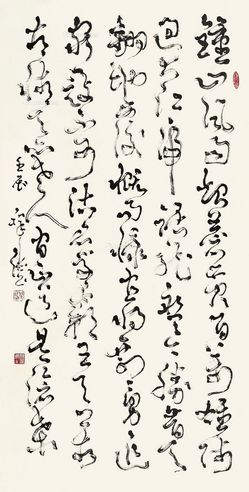 鐘山風雨起蒼黃百萬雄師
過大江虎踞龍盤今勝昔天
翻地覆慨而慷宜將剩勇追
窮寇不可沽名學霸王天若
有情天亦老人間正道是滄桑